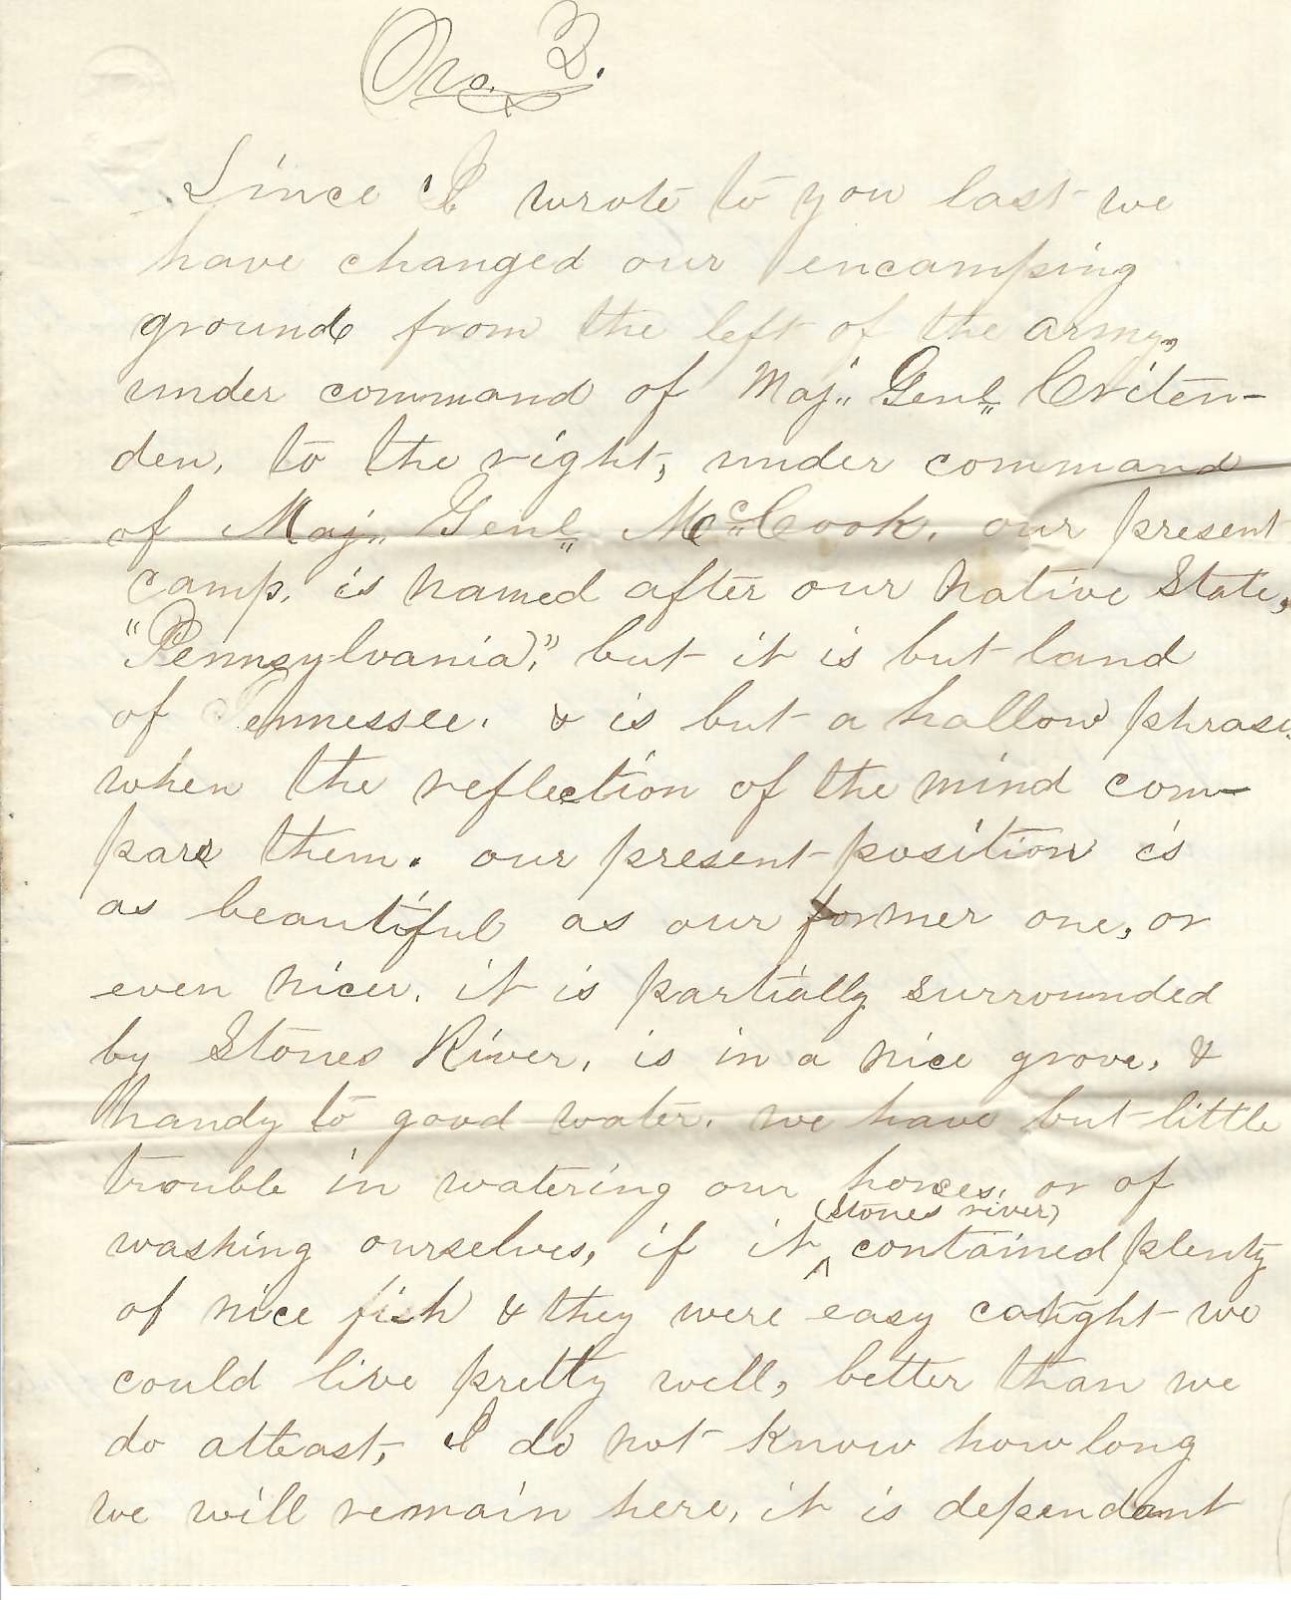 No. 3.
Since I wrote to you last we
have changed our encamping
ground from the left of the army,
under command of Maj,, Genl,, Criten-
den, to the right, under command
of Maj,, Genl,, McCook. our present
camp, is named after our native State,
"Pennsylvania," but it is but land
of Tennessee. & is but a hallow phrase
when the reflection of the mind com-
pare them. our present position is
as beautiful as our former one, or
even nicer. it is partially surrounded
by Stones River, is in a nice grove, &
handy to good water. we have but little
trouble in watering our horses, or of
(Stones river)
washing ourselves, if it ^ contained plenty
of nice fish & they were easy caught we
could live pretty well, better than we
do atleast, I do not know how long
we will remain here, it is dependant